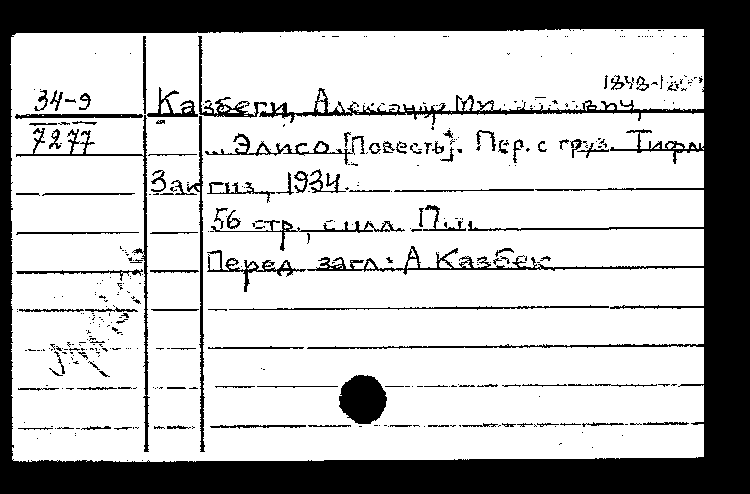 34-9
7277
Казбеги, Александр
... Элисо. [Повесть]. Пер. с груз. Тифл
Закгиз, 1934.
56 стр., с илл. П.л.
Перед загл.: А Казбек